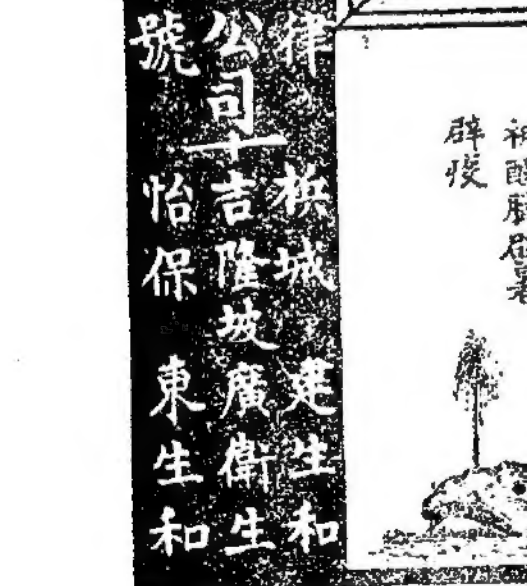 律　檳城　建生和
公司十吉隆坡廣衛生
號　怡保　東生和
辟疫